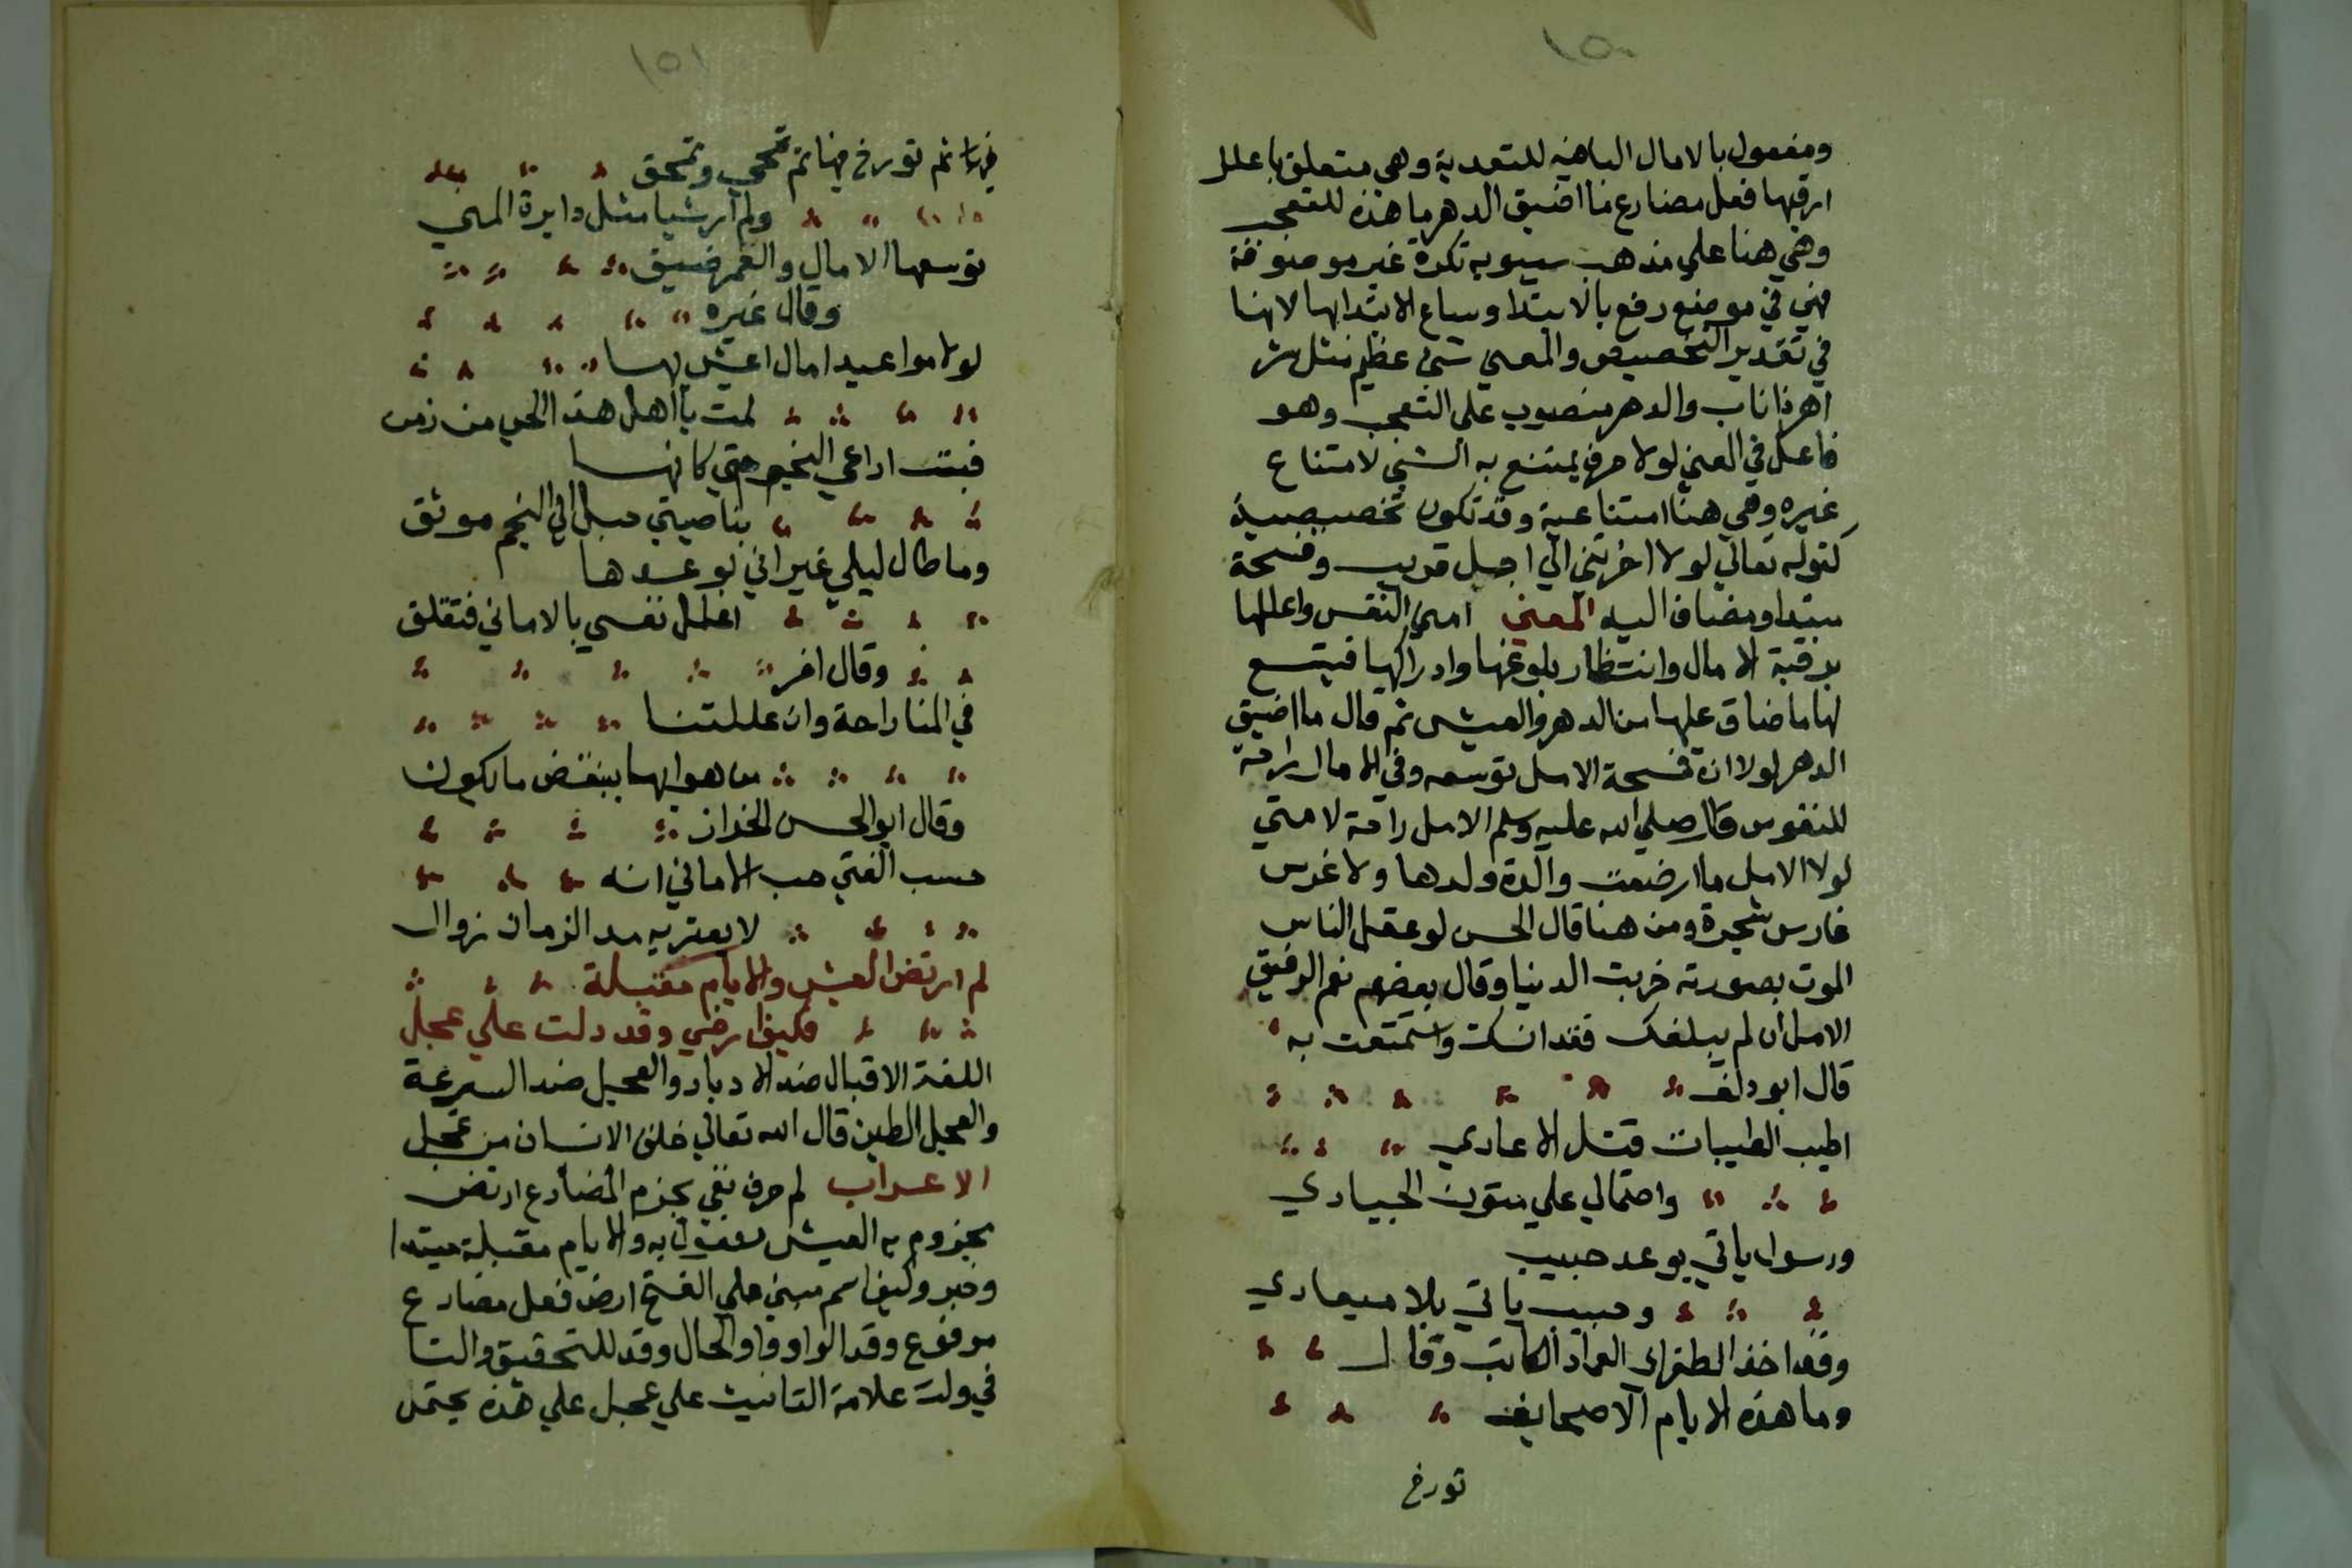 ١٥٠
ومفعول بالامال الباهنيه للتعدية وهي متعلق باعلل
ارقبها فعل مضارع ما اضيق الدهر ما هذه للتعجب
وهي هنا علي مذهب سيبويه نكرة غير موصوفة
فهي في موضع رفع بالابتدا وساغ الابتدا بها لانها
في تقدير التخصيص والمعني شئ عظيم مثل شر
اهر ذا ناب والدهر منصوب علي التعجب وهو
فاعل في المعني لولا حرف يمتنع به الشي لامتناع
غيره وهي هنا امتناعية وقد تكون تخصيصية
كقوله تعالي لولا اخرتني الي اجل قريب وفسحة
مبتدا ومضاف اليه المعني امني النفس واعللها
برقبة الامال وانتظار بلوغها وادراكها فيتسع
لها ما ضاق عليها من الدهر والعيش ثم قال ما اضيق
الدهر لولا ان فسحة الامل توسعه وفي الامال راحة
للنفوس قال صلي الله عليه وسلم الامل راحة لامتي
لولا الامل ما ارضعت والدة ولدها ولا غرس
غارس شجرة ومن هنا قال الحسن لو عقل الناس
الموت بصورته خربت الدنيا وقال بعضهم نعم الرفيق
الامل ان لم يبلغك فقد انسك واستمتعت به
قال ابو دلف
اطيب الطيبات قتل الاعادي
واحتمالي علي متون الجيادي
ورسول ياتي بوعد حبيب
وحبيب ياتي بلا ميعادي
وقد اخذ الطغراي العماد الكاتب وقال
وما هذه الايام الا صحايف
تورخ
١٥١
ثم تورخ فيها ثم تمحي وتمحق
ولم ار شيا مثل دايرة المني
توسعها الامال والعمر ضيق
وقال غيره
لولا مواعيد امال اعيش بها
لمت يا اهل هذا الحي من زمن
فبت اراعي النجم حتي كانما
بناصيتي حبل الي النجم موثق
وما طال ليلي غير اني بوعدها
اعلل نفسي بالاماني فتقلق
وقال اخر
في المنا راحة وان عللتنا
من هواها ببعض ما لا يكون
وقال ابو الحسن الخزاز
حسب الفتي حب الاماني انه
لا يعتريه مد الزمان زوال
لم ارتض العيش والايام مقبلة
فكيف ارضي وقد دلت علي عجل
اللغة الاقبال ضد الادبار والعجل ضد السرعة
والعجل الطين قال الله تعالي خلق الانسان من عجل
الاعراب لم حرف نفي يجزم المضارع ارتض
مجزوم به العيش مفعول به والايام مقبلة مبتدا
وخبر وكيف اسم مبني علي الفتح ارض فعل مضارع
مرفوع وقد الواو واو الحال وقد للتحقيق والتا
في ولت علامة التانيث علي عجل علي هذه يحتمل